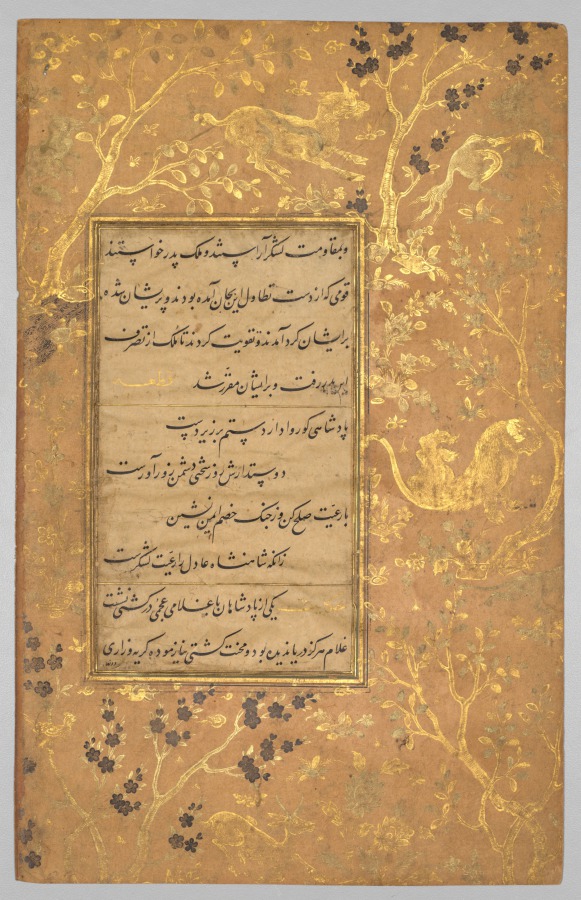 و بمقاومت لشکر آراستند و ملک پدر خواستند
قومی که از دست تطاول این بجان آمده بودند و پریشان شده
بر ایشان گرد آمدند و تقویت کردند تا ملک از تصرف
این بدر رفت و بر ایشان مقرر شد قطعه
پادشاهی کو روا دارد ستم بر زیردست
دوستدارش روز سختی دشمن زورآورست
با رعیت صلح کن وز جنک خصم ایمن نشین
زانکه شاهنشاه عادل را رعیت لشکرست
یکی از پادشاهان با غلامی عجمی در کشتی نشست
غلام هرکز دریا ندیده بود و محنت کشتی نیازموده کریه و زاری